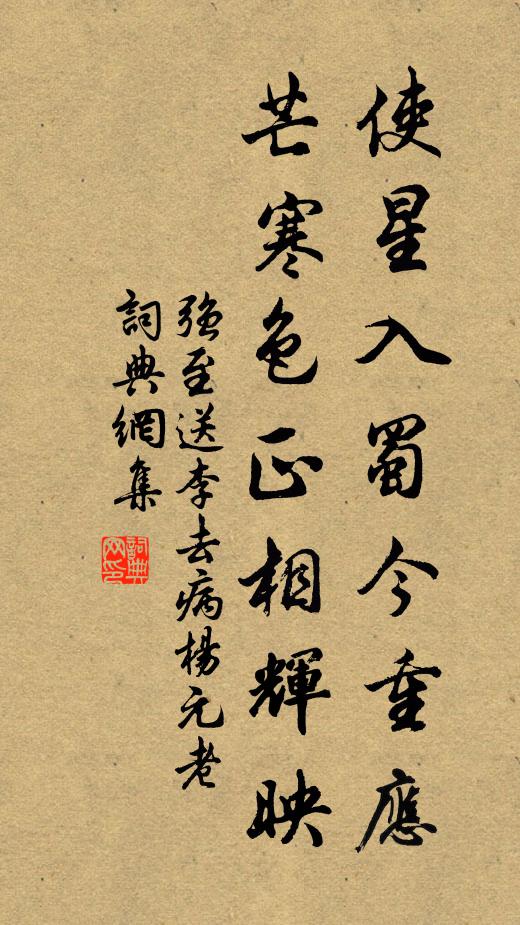 使星入蜀今重應
芒寒色正相輝映
強至送李去病楊元老
詞典網集
詞典網印